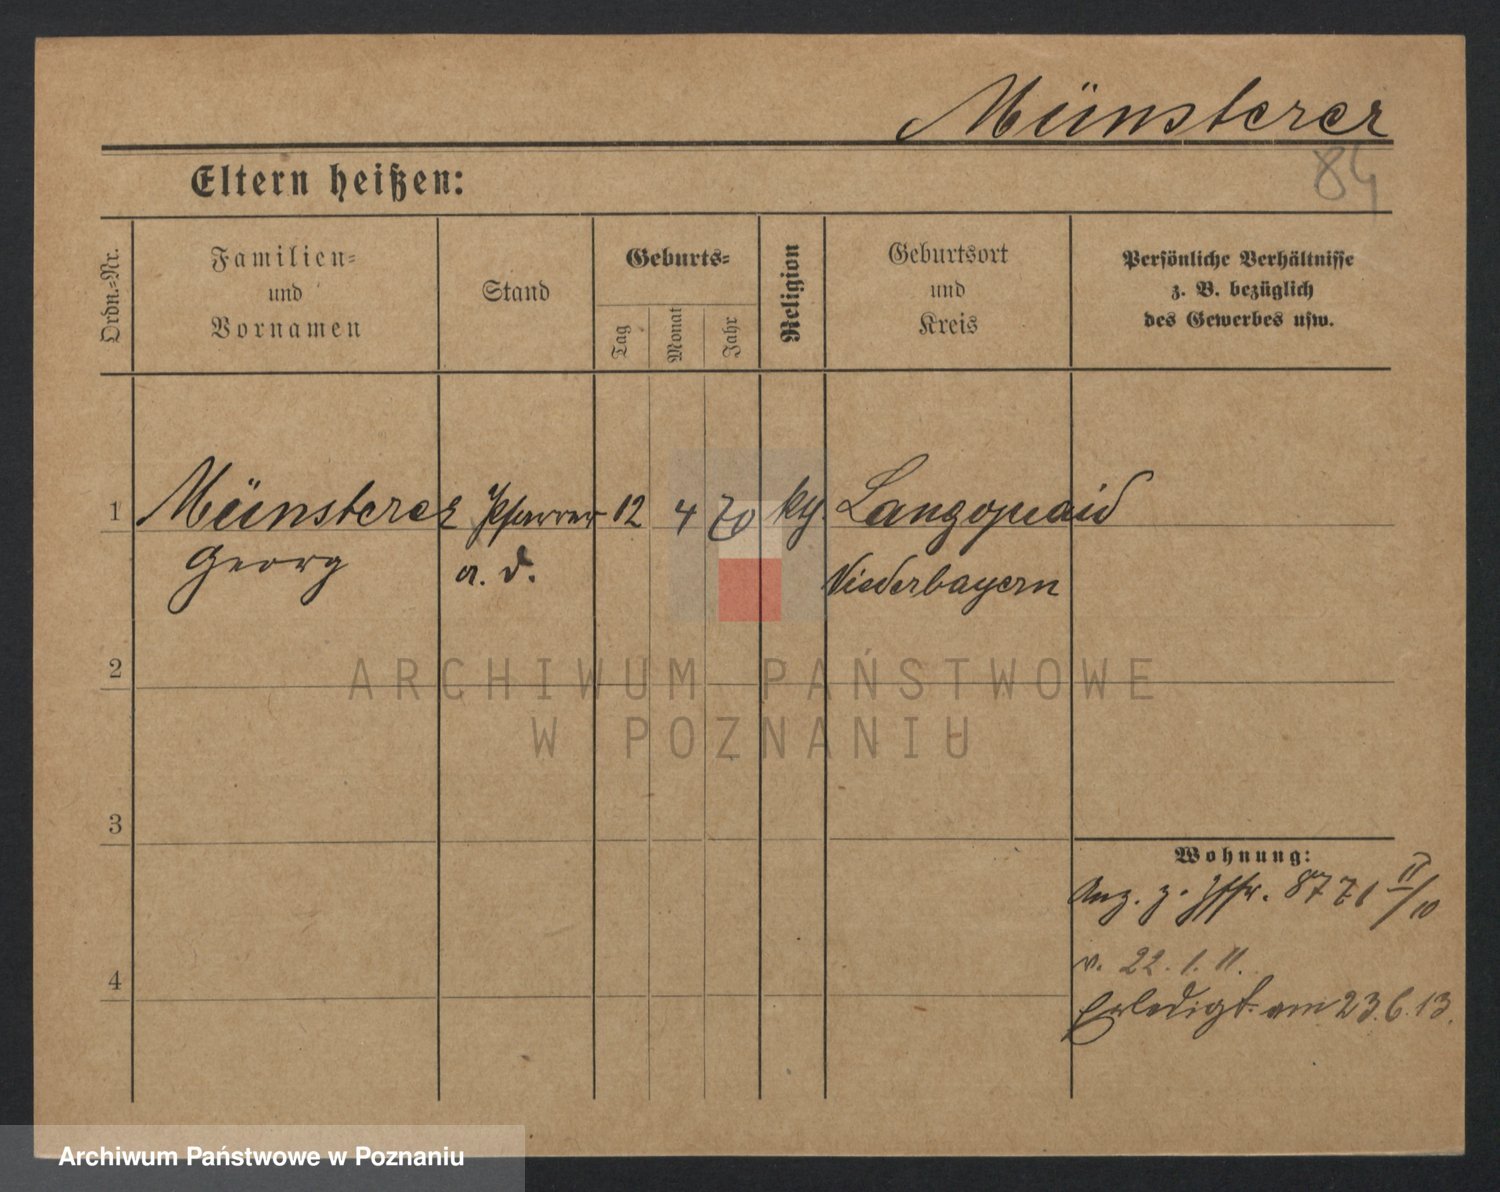 Münsterer
84
Eltern heißen:
Ordn.=Nr.
Familien=
und
Vornamen
Stand
Geburts=
Tag
Monat
Jahr
Religion
Geburtsort
und
Kreis
Persönliche Verhältnisse
z. B. bezüglich
des Gewerbes usw.
1 Münsterer Pfarrer 12 4 70
Georg a. D. Niederbayern
2
ARCHIWUM PAŃSTWOWE
W POZNANIU
3
Wohnung:
Anz. z. 8771 II/10
v. 22.1.11.
4
Erledigt am 23.6.13.
Archiwum Państwowe w Poznaniu